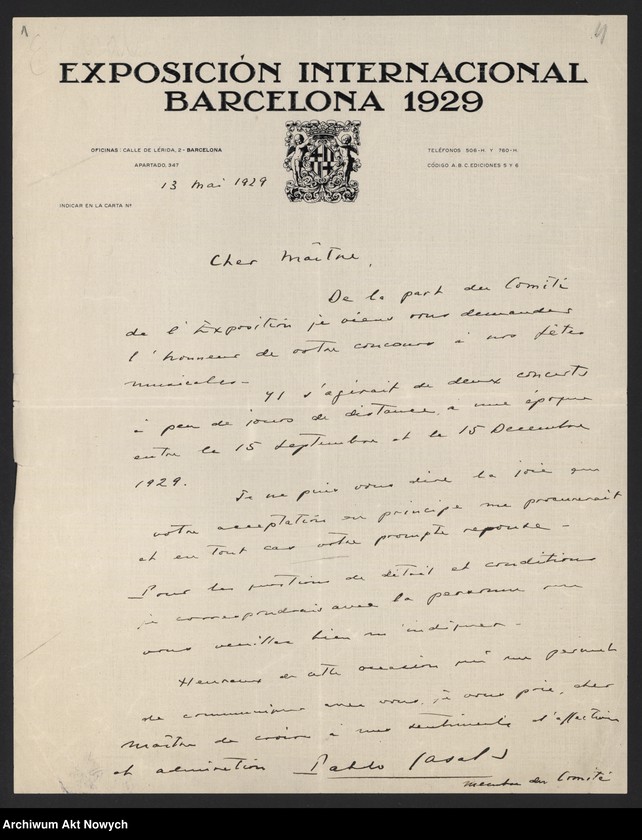 EXPOSICIÓN INTERNACIONAL
BARCELONA 1929
OFICINAS: CALLE DE LÉRIDA, 2 - BARCELONA
APARTADO, 347
TELÉFONOS 506-H. Y 760-H.
CÓDIGO A.B.C. EDICIONES 5 Y 6
13 mai 1929
INDICAR EN LA CARTA Nº
Cher Maître,
De la part du Comité
de l'Exposition je viens vous demander
l'honneur de votre concours à nos fêtes
musicales -
Il s'agirait de deux concerts
à peu de jours de distance, à une époque
entre le 15 Septembre et le 15 Decembre
1929.
Je ne puis vous dire la joie que
votre acceptation en principe me procurerait
et en tout cas votre prompte reponse -
Pour les questions de détail et conditions
je correspondrais avec la personne que
vous veuillez bien m'indiquer -
Heureux de cette occasion qui me permet
de communiquer avec vous, je vous prie, cher
Maître de croire à mes sentiments d'affection
et admiration Pablo Casals
membre du Comité
Archiwum Akt Nowych